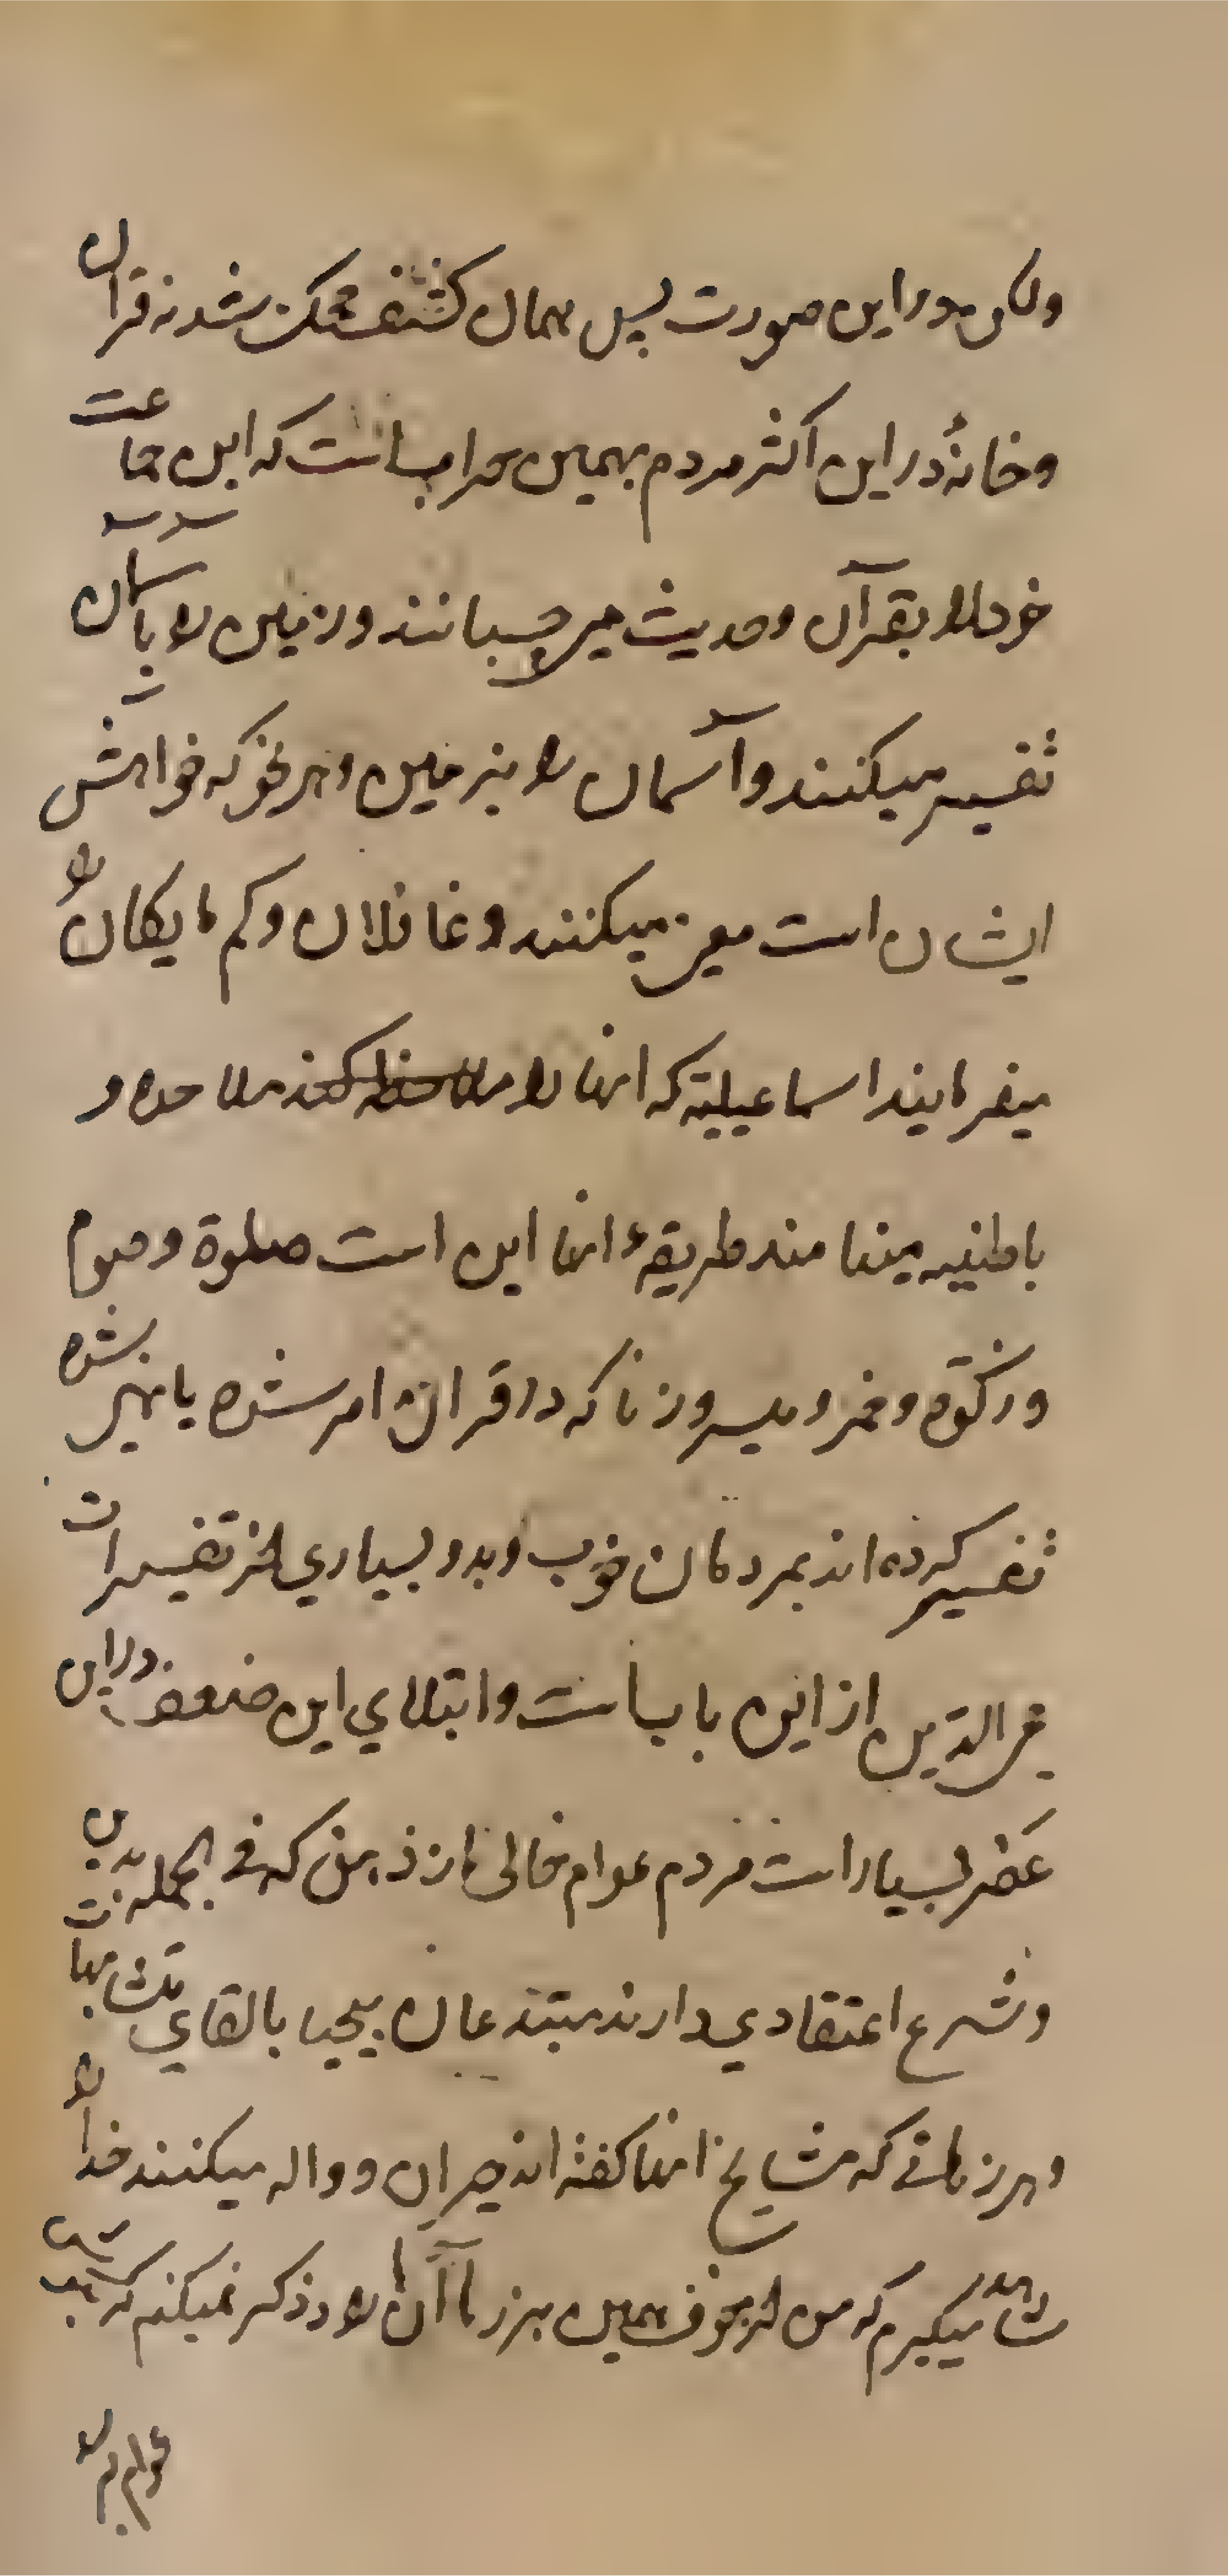 ولکن در این صورت پس همان کشف محک شد نه قرآن
و خانهٔ در این اکثر مردم بهمین خراب است که این جماعت
خود را بقرآن و حدیث میچسبانند و زمین را بآسمان
تفسیر میکنند و آسمان را بزمین و هر نحو که خواهش
ایشان است معنی میکنند و غافلان و کم مایکان را
میفرمایند اسماعیلیه که انها را ملاحده و
باطنیه مینامند طریقهٔ انها این است صلوة و صوم
و زکوة و خمر و میسر و زنا که در قران امر شده یا نهی شده
تفسیر کرده اند بمردمان خوب و بد و بسیاری از تفسیرات
محی الدین از این باب است و ابتلای این ضعفا در این
عصر بسیار است مردم عوام خالی از ذهن که فی الجمله بدین
و شرع اعتقادی دارند مبتدعان بیحیا بالقای متشابهات
و هرزهاتی که مشایخ انها کفته اند حیران و واله میکنند خدا را
شاهد میکیرم که من از خوف همین هرزها آن را ذکر نمیکنم که
عوام